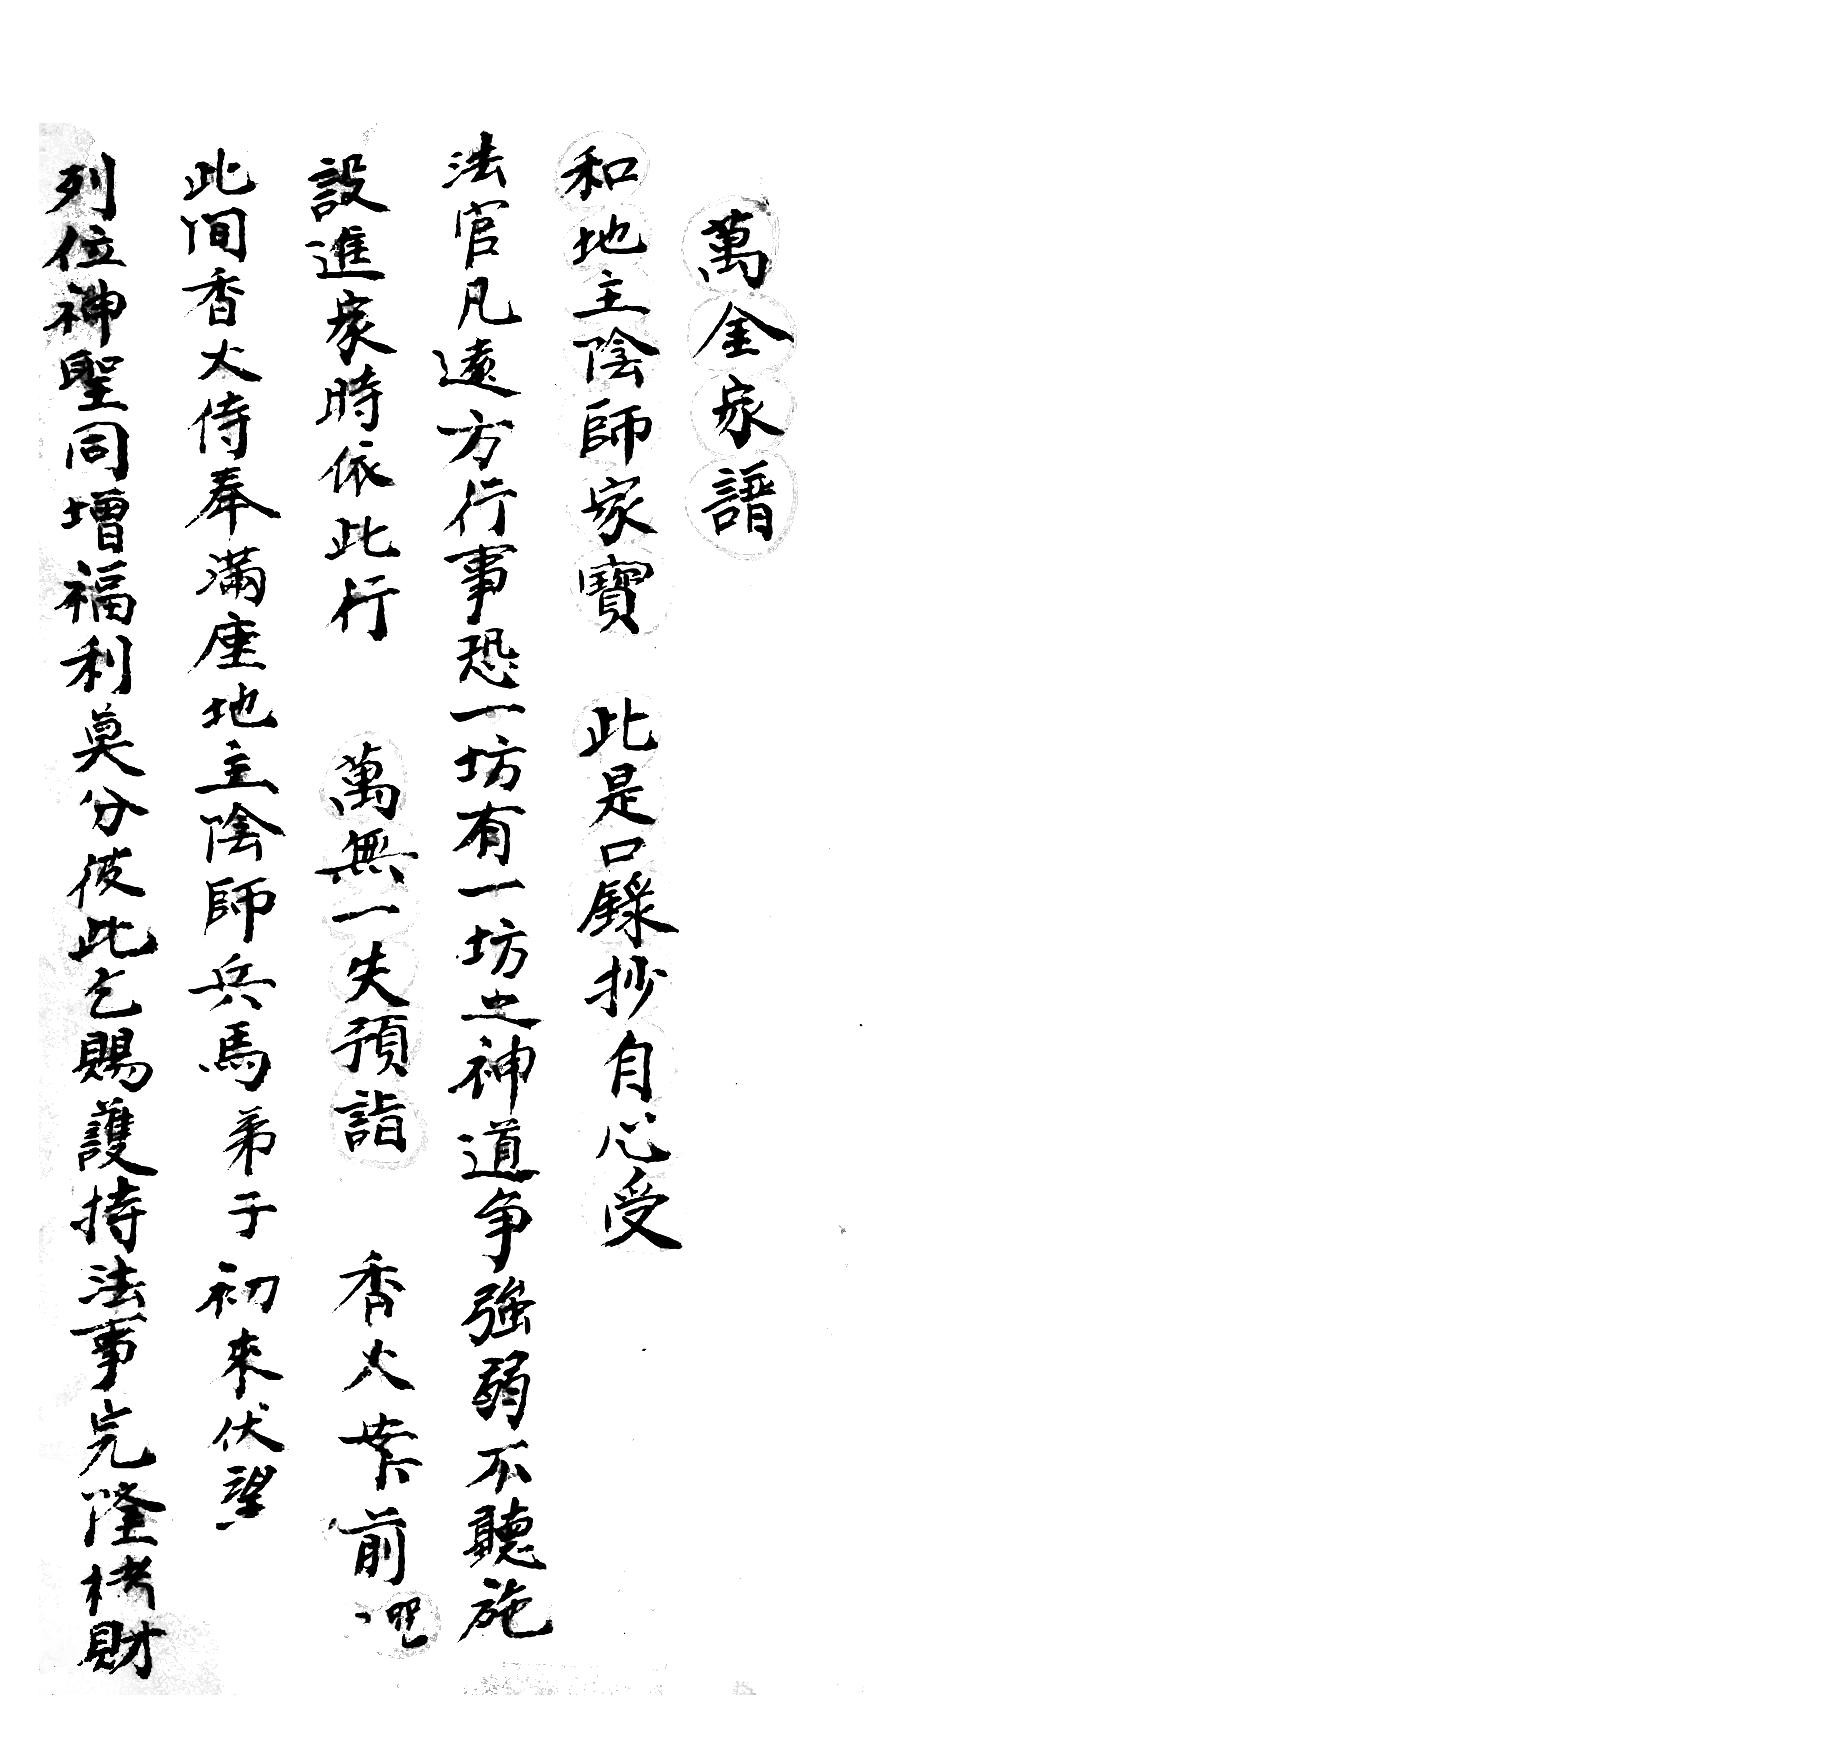 萬金家譜
和地主陰師家寶　此是口錄抄自心受
法官凡遠方行事恐一坊有一坊之神道争強弱不聽施
設進家時依此行　萬無一失預詣　香火業前咒
此間香火侍奉滿座地主陰師兵馬弟子初來伏望
列位神聖同增福利莫分彼此乞賜護持法事完隆栲財